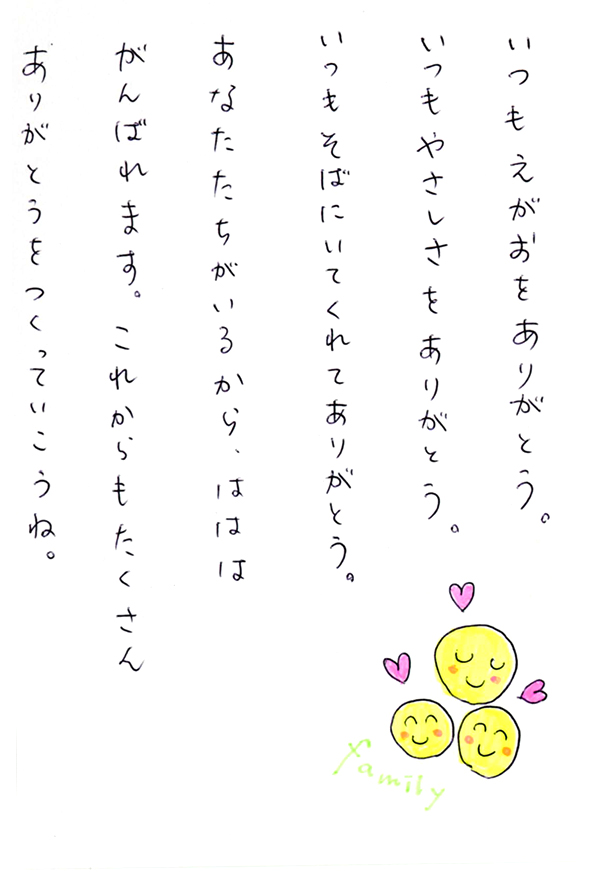 いつもえがおをありがとう。
いつもやさしさをありがとう。
いつもそばにいてくれてありがとう。
あなたたちがいるから、ははは
がんばれます。これからもたくさん
ありがとうをつくっていこうね。
family